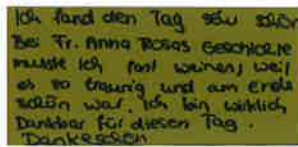 Ich fand den Tag sehr schön
Bei Fr. Anna Rosas Geschichte
musste ich fast weinen, weil
es so traurig und am Ende
schön war. Ich bin wirklich
Dankbar für diesen Tag.
Dankeschön